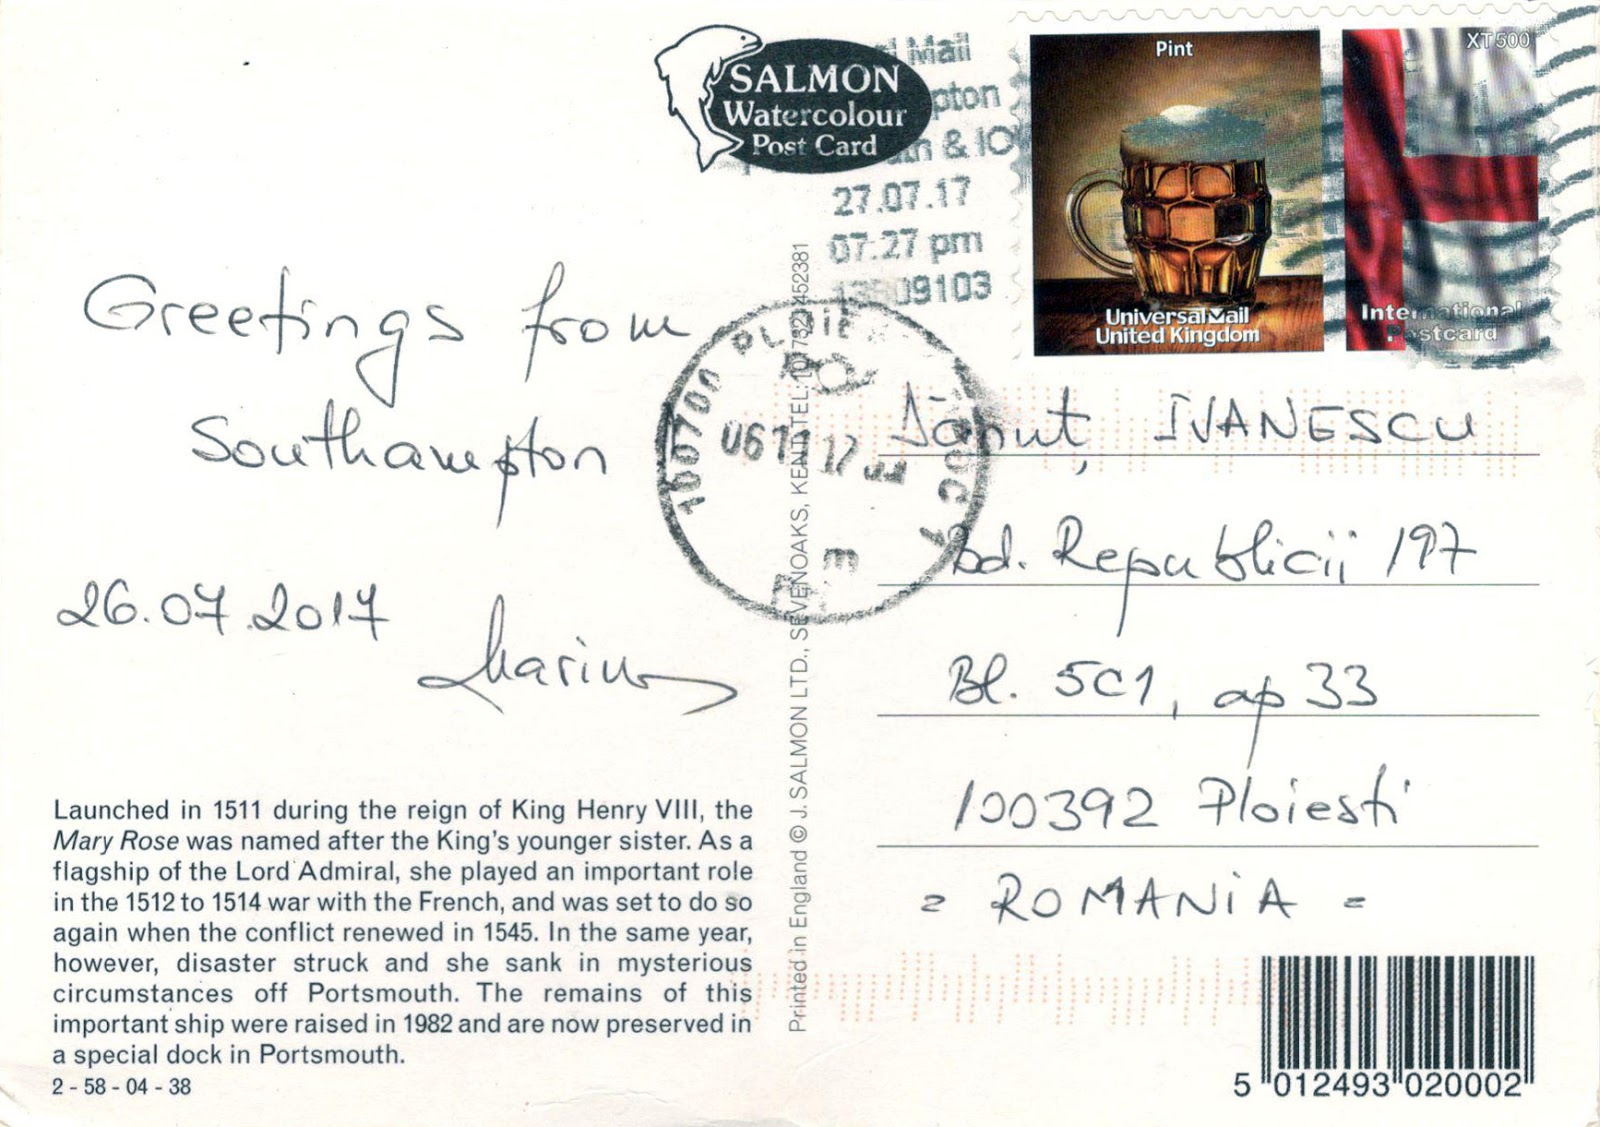 SALMON
Watercolour
Post Card
Mail
& IO
27.07.17
07:27 pm
Pint
XT500
UniversalMail
United Kingdom
International
Postcard
Greetings from
Southampton
26.07.2017
Marius
100700
IVANESCU
bd. Republicii 197
Bl. 5C1, ap 33
100392 Ploiesti
= ROMANiA =
Launched in 1511 during the reign of King Henry VIII, the
Mary Rose was named after the King's younger sister. As a
flagship of the Lord Admiral, she played an important role
in the 1512 to 1514 war with the French, and was set to do so
again when the conflict renewed in 1545. In the same year,
however, disaster struck and she sank in mysterious
circumstances off Portsmouth. The remains of this
important ship were raised in 1982 and are now preserved in
a special dock in Portsmouth.
2 - 58 - 04 - 38
Printed in England © J. SALMON LTD., SEVENOAKS, KENT. TEL:
5 012493 020002